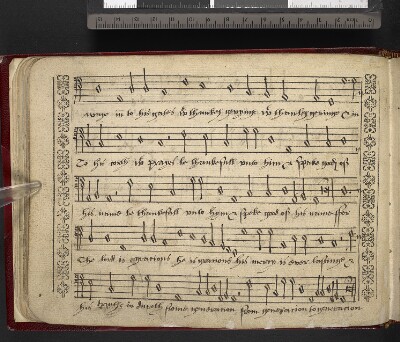 waye in to his gates wt thankes gevynge wt thankes gevinge & in
To his corts wt prayse be thankefull unto him & speke good of
his name be thankefull unto him & speke good of his name for
the lord is gratious he is gratious his mercy is ever lastinge &
his truthe endureth frome generation from generation to generation